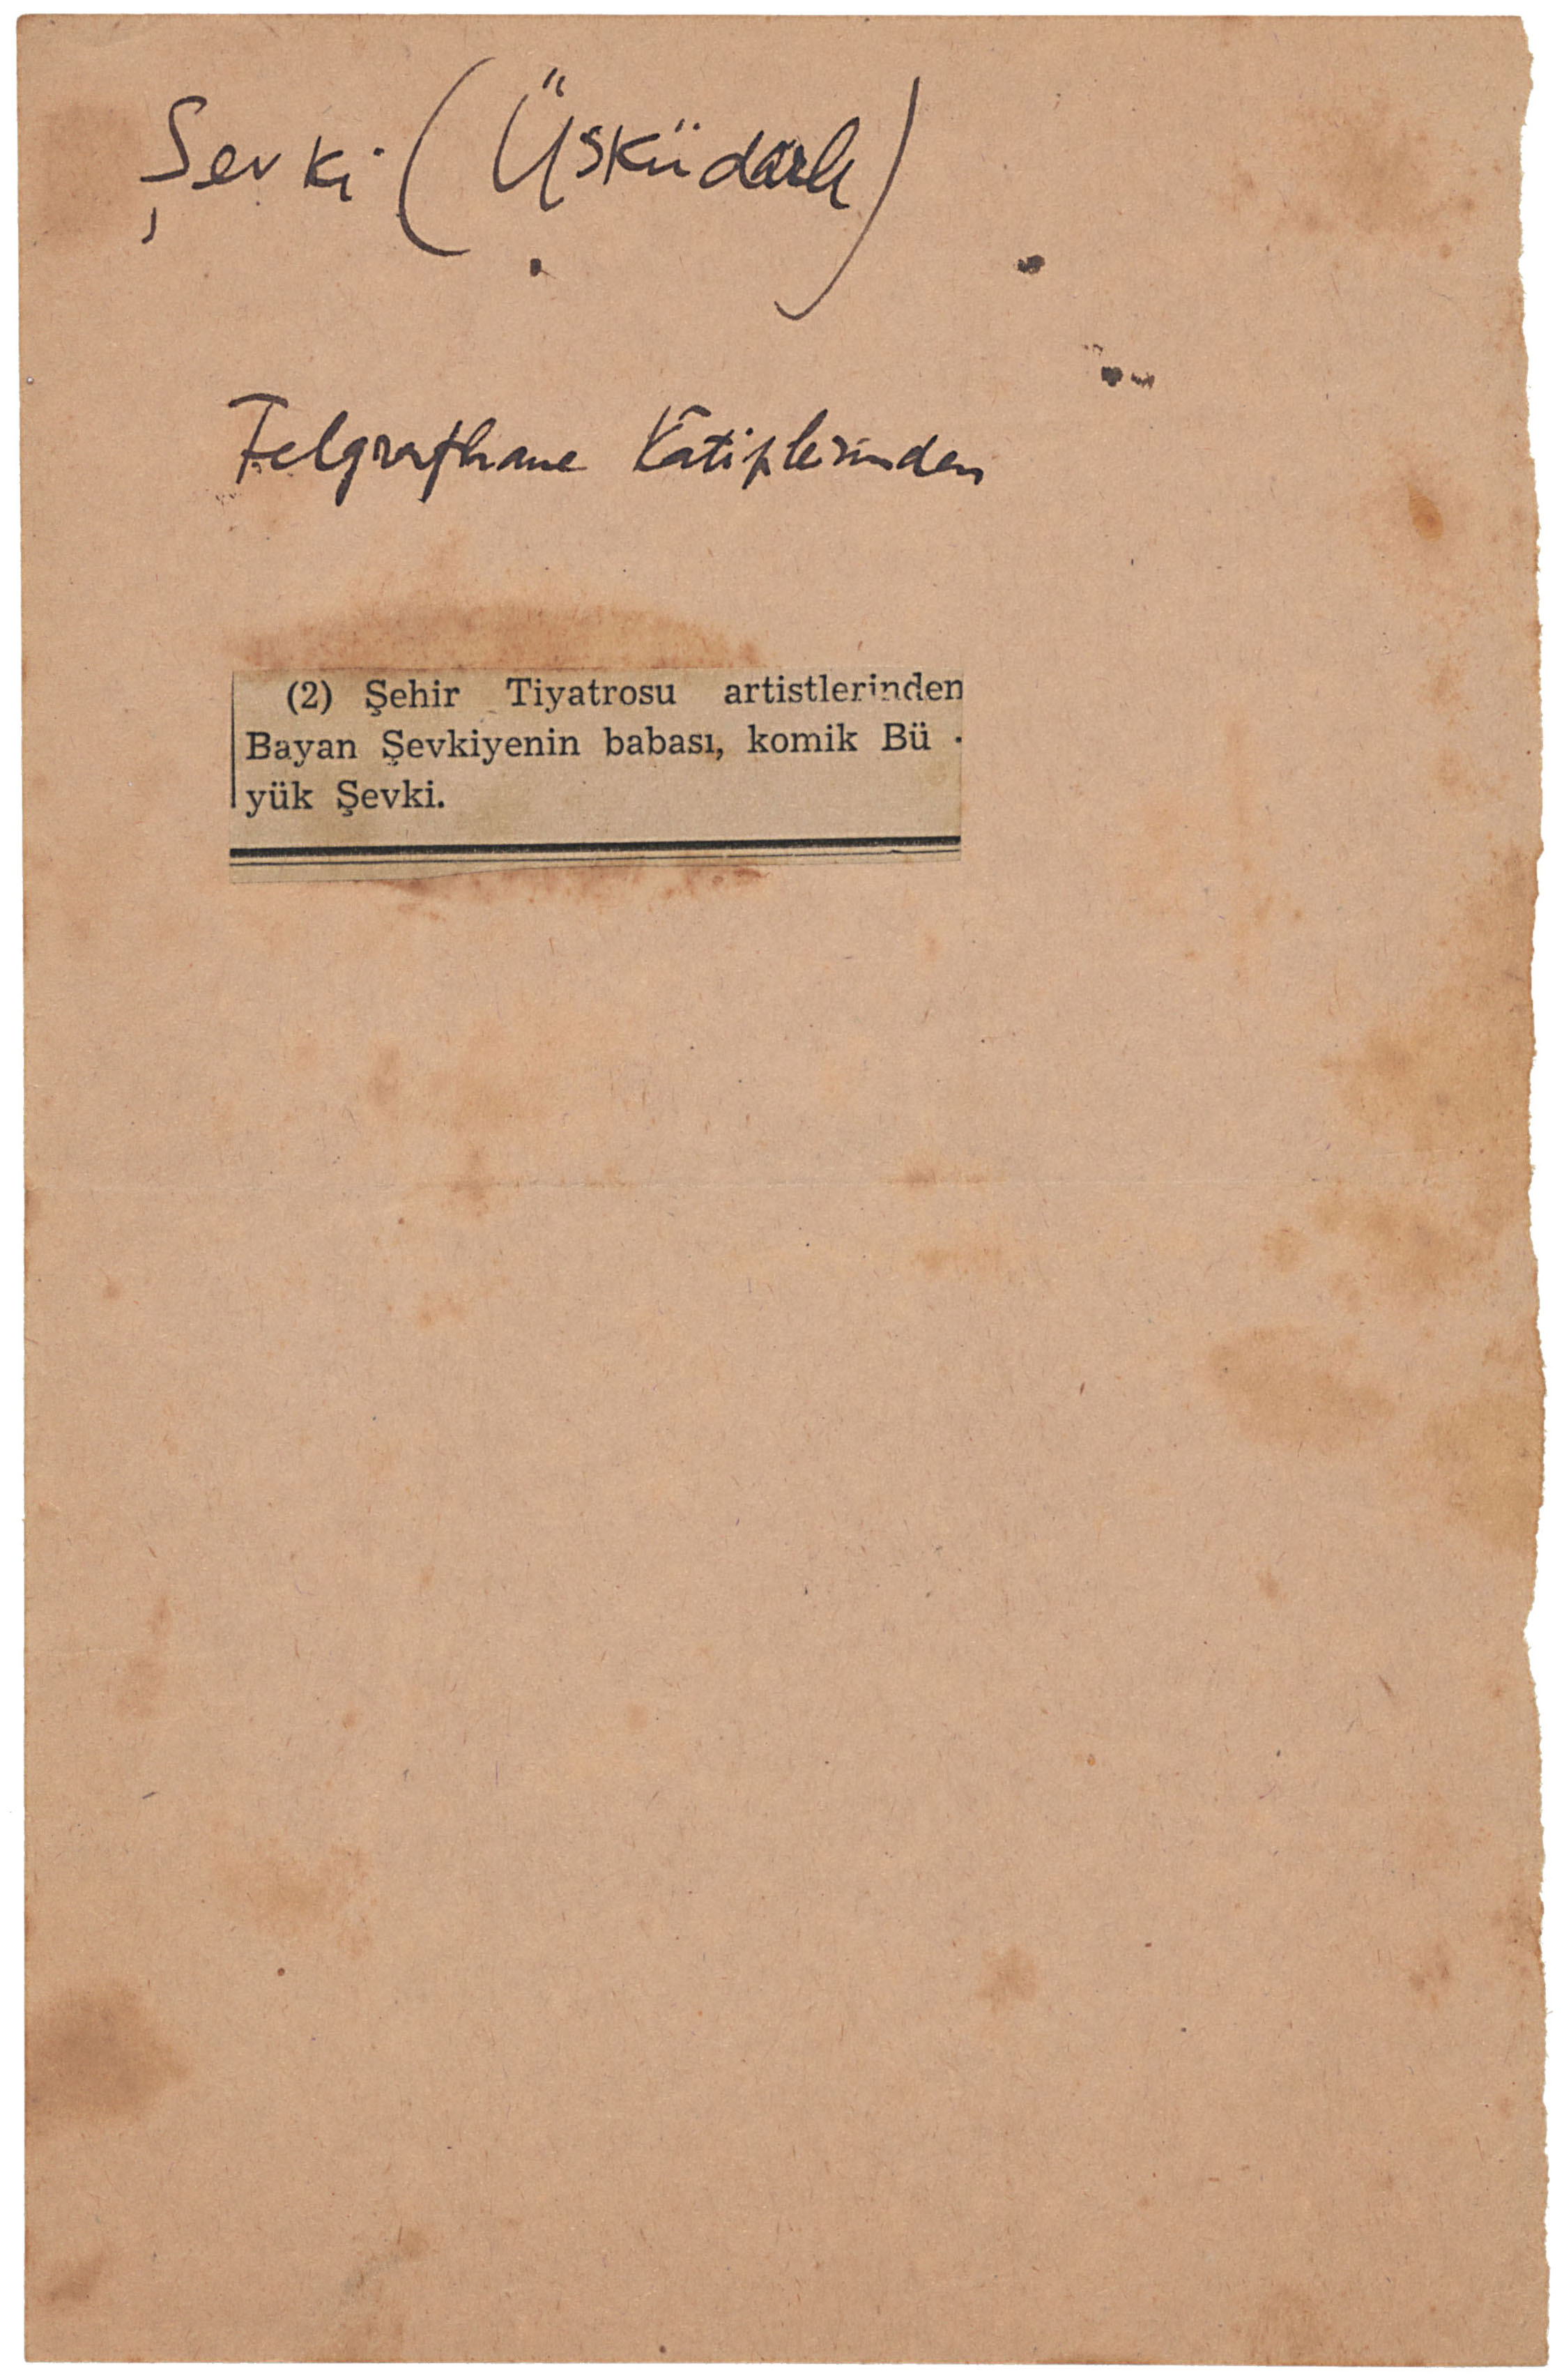 Şevki (Üsküdarlı)
Telgrafhane Katiplerinden
(2) Şehir Tiyatrosu artistlerinden
Bayan Şevkiyenin babası, komik Bü -
yük Şevki.